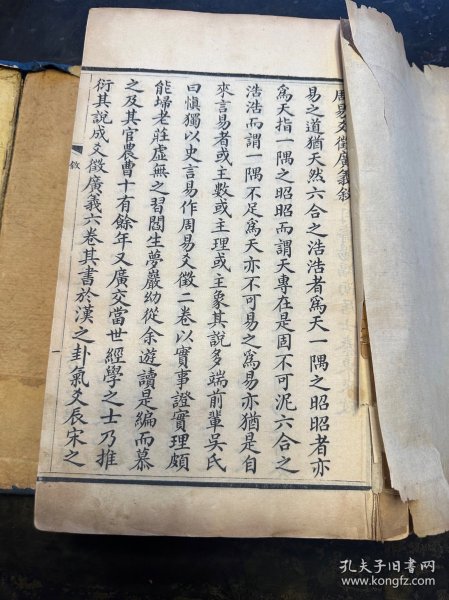 周易爻徵廣義敘
易之道猶天然六合之浩浩者爲天一隅之昭昭者亦
爲天指一隅之昭昭而謂天專在是固不可泥六合之
浩浩而謂一隅不足爲天亦不可易之爲易亦猶是自
來言易者或主數或主理或主象其說多端前輩吳氏
曰愼獨以史言易作周易爻徵二卷以實事證實理頗
能埽老莊虛無之習閻生夢巖幼從余遊讀是編而慕
之及其官農曹十有餘年又廣交當世經學之士乃推
衍其說成爻徵廣義六卷其書於漢之卦氣爻辰宋之
敘
一
孔夫子旧书网
www.kongfz.com